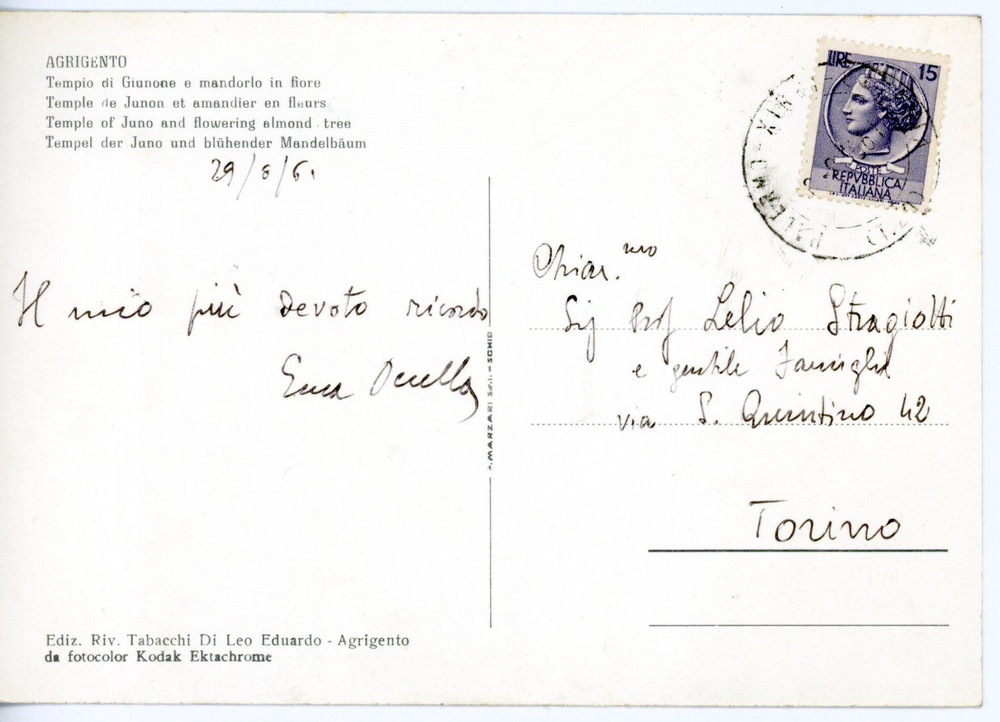 AGRIGENTO
Tempio di Giunone e mandorlo in fiore
Temple de Junon et amandier en fleurs
Temple of Juno and flowering almond tree
Tempel der Juno und blühender Mandelbäum
29/8/61
Il mio più devoto ricordo
MARZARI S.p.A. - SCHIO
LIRE 15
POSTE
REPVBBLICA
ITALIANA
PALERMO
Chiar.mo
Sig Prof Lelio Stragiotti
e gentile Famiglia
via S. Quintino 42
Torino
Ediz. Riv. Tabacchi Di Leo Eduardo - Agrigento
da fotocolor Kodak Ektachrome